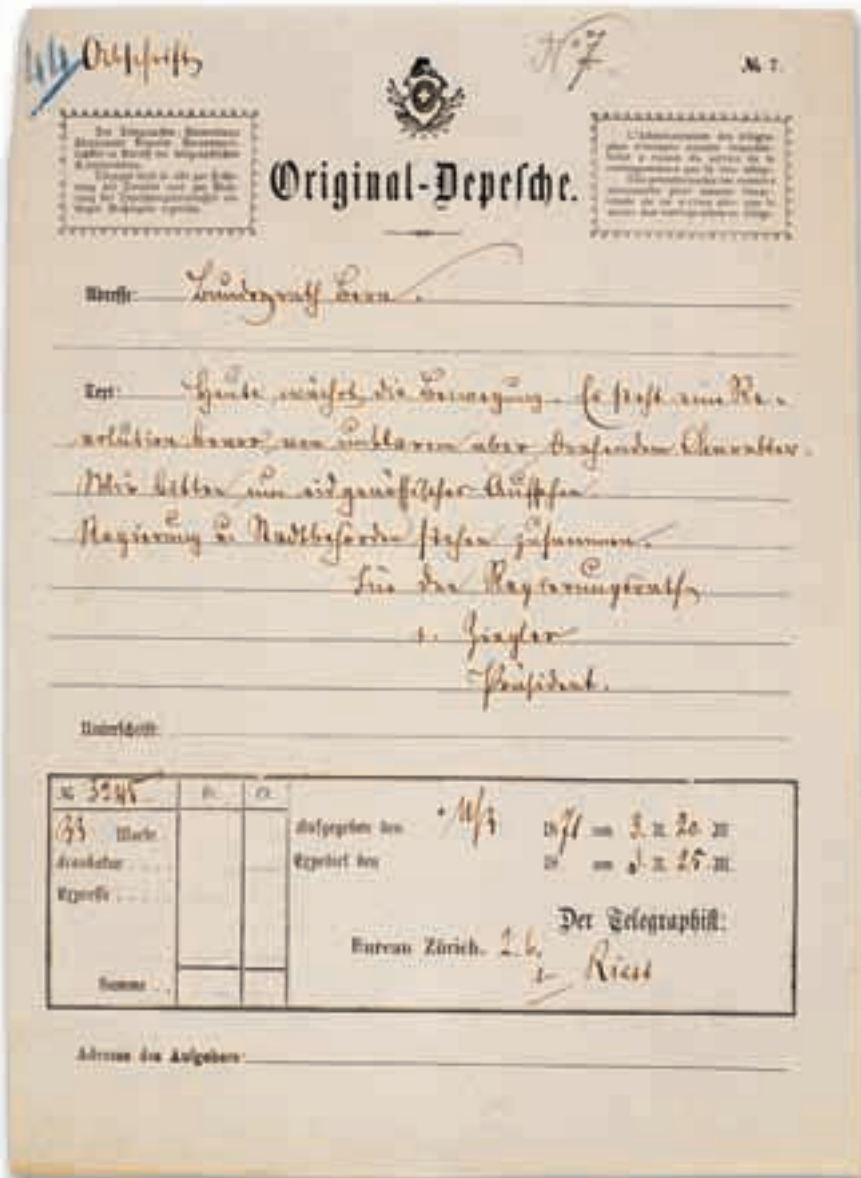 44 Abschrift
No 7
№ 7.
Original-Depesche.
Adresse: Bundesrath Bern.
Text: Heute wächst die Bewegung. Es steht eine Re-
volution bevor, von unklarem aber drohendem Charakter.
Wir bitten um eidgenössisches Aufsehen.
Regierung u. Stadtbehörden stehen zusammen.
Für den Regierungsrath
s. Ziegler
Präsident.
Unterschrift:
№ 3245 Fr. Ct.
33 Worte
Expresse
Summe
Aufgegeben den 11/3 1871 um 3 U. 20 M
Expedirt den 18 um 3 U. 25 M.
Der Telegraphist:
Bureau Zürich.
s. Riess
Adresse des Aufgebers: